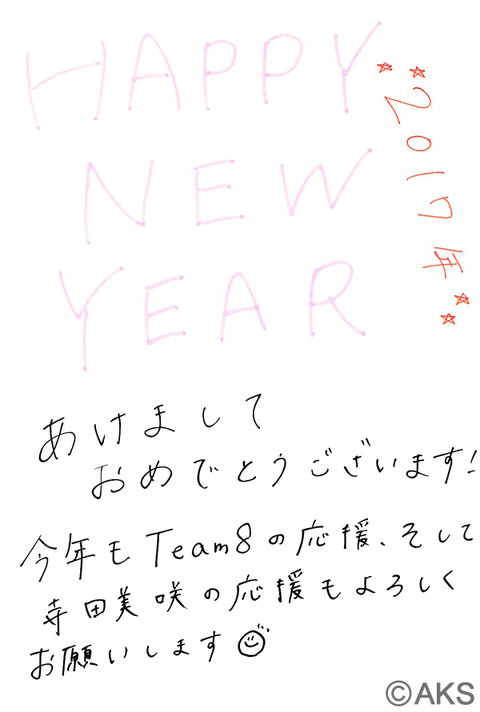 HAPPY
NEW
YEAR
2017年
あけまして
おめでとうございます!
今年もTeam8の応援、そして
寺田美咲の応援もよろしく
お願いします
©AKS